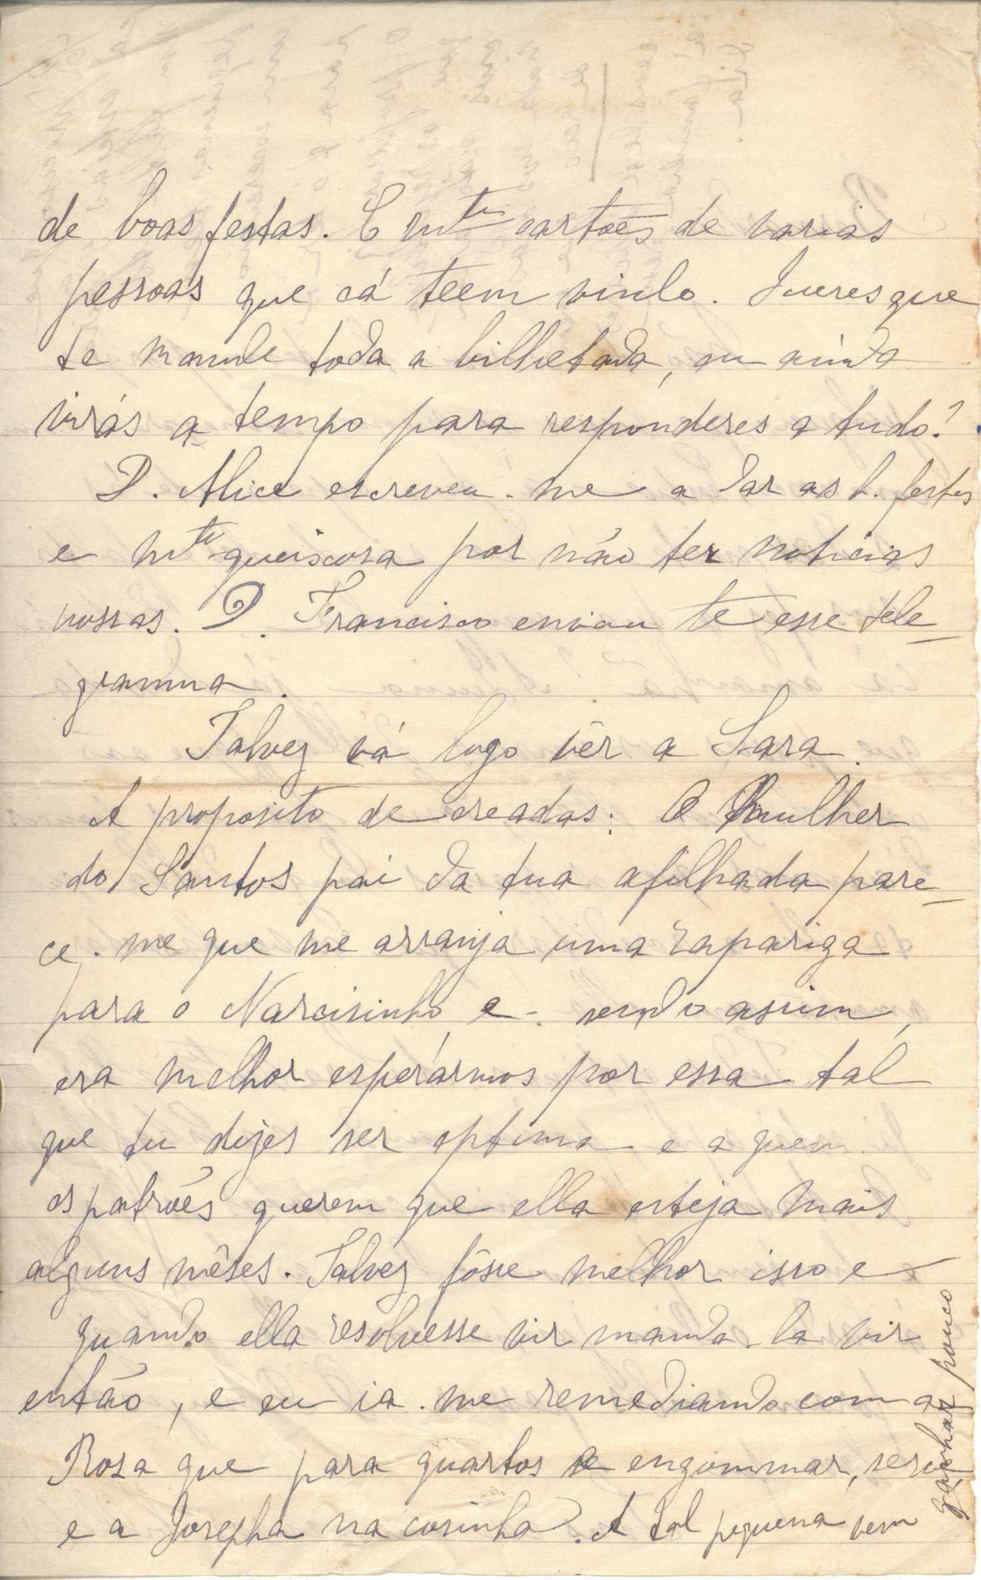 de boas festas. E mtos cartões de varias
pessoas que cá teem vindo. Queres que
te mande toda a bilhetada, ou ainda
virás a tempo para responderes a tudo?
D. Alice escreveu-me a dar as b. festas
e mto queixosa por não ter noticias
nossas. D. Francisco enviou te esse tele-
gramma.
Talvez vá logo vêr a Sara.
A proposito de creadas: A mulher
do Santos pai da tua afilhada pare-
ce-me que me arranja uma rapariga
para o Narcisinho e - sendo assim,
era melhor esperármos por essa tal
que tu dizes ser optima e a quem
os patrões querem que ella esteja mais
alguns mêses. Talvez fôsse melhor isso e
quando ella resolvesse vir manda-la vir
então, e eu ia-me remediando com a
Rosa que para quartos e engommar, serve
e a Josepha na cosinha. A tal pequena vem
ganhar pouco